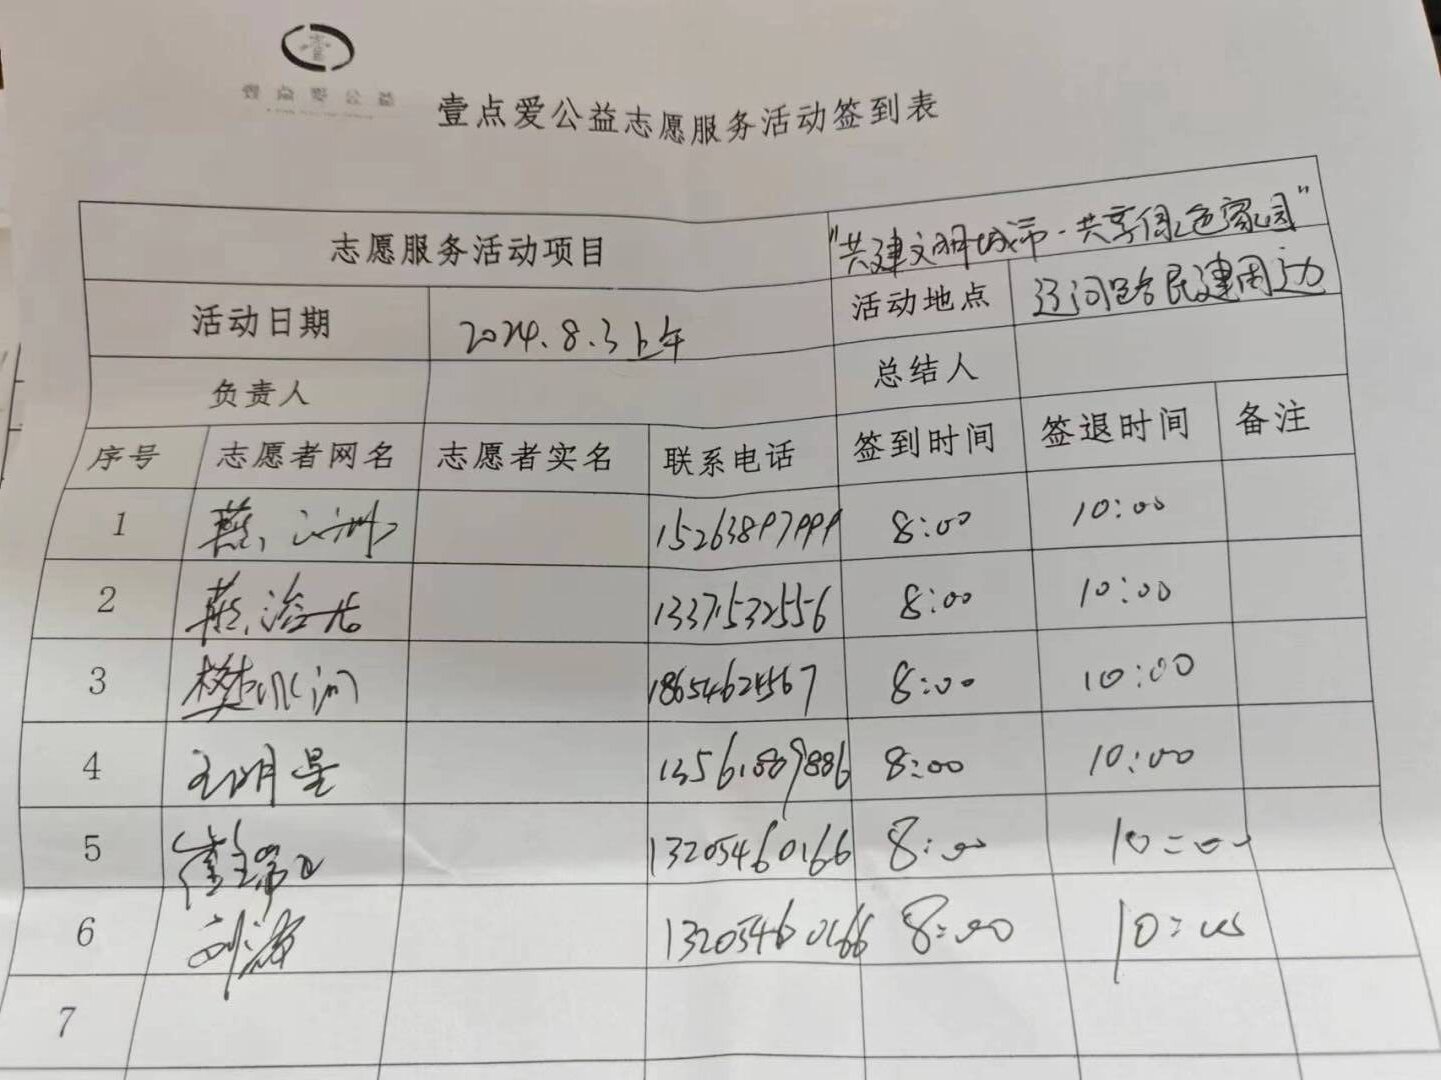 壹点爱公益
壹点爱公益志愿服务活动签到表
志愿服务活动项目 "共建文明城市·共享绿色家园"
活动日期 2024.8.3上午 活动地点 民建周边
负责人 总结人
序号 志愿者网名 志愿者实名 联系电话 签到时间 签退时间 备注
1 8:00 10:00
2 13371532556 8:00 10:00
3 18654624567 8:00 10:00
4 王明星 13561889886 8:00 10:00
5 13205460166 8:00 10:00
6 刘海 13205460166 8:00 10:00
7